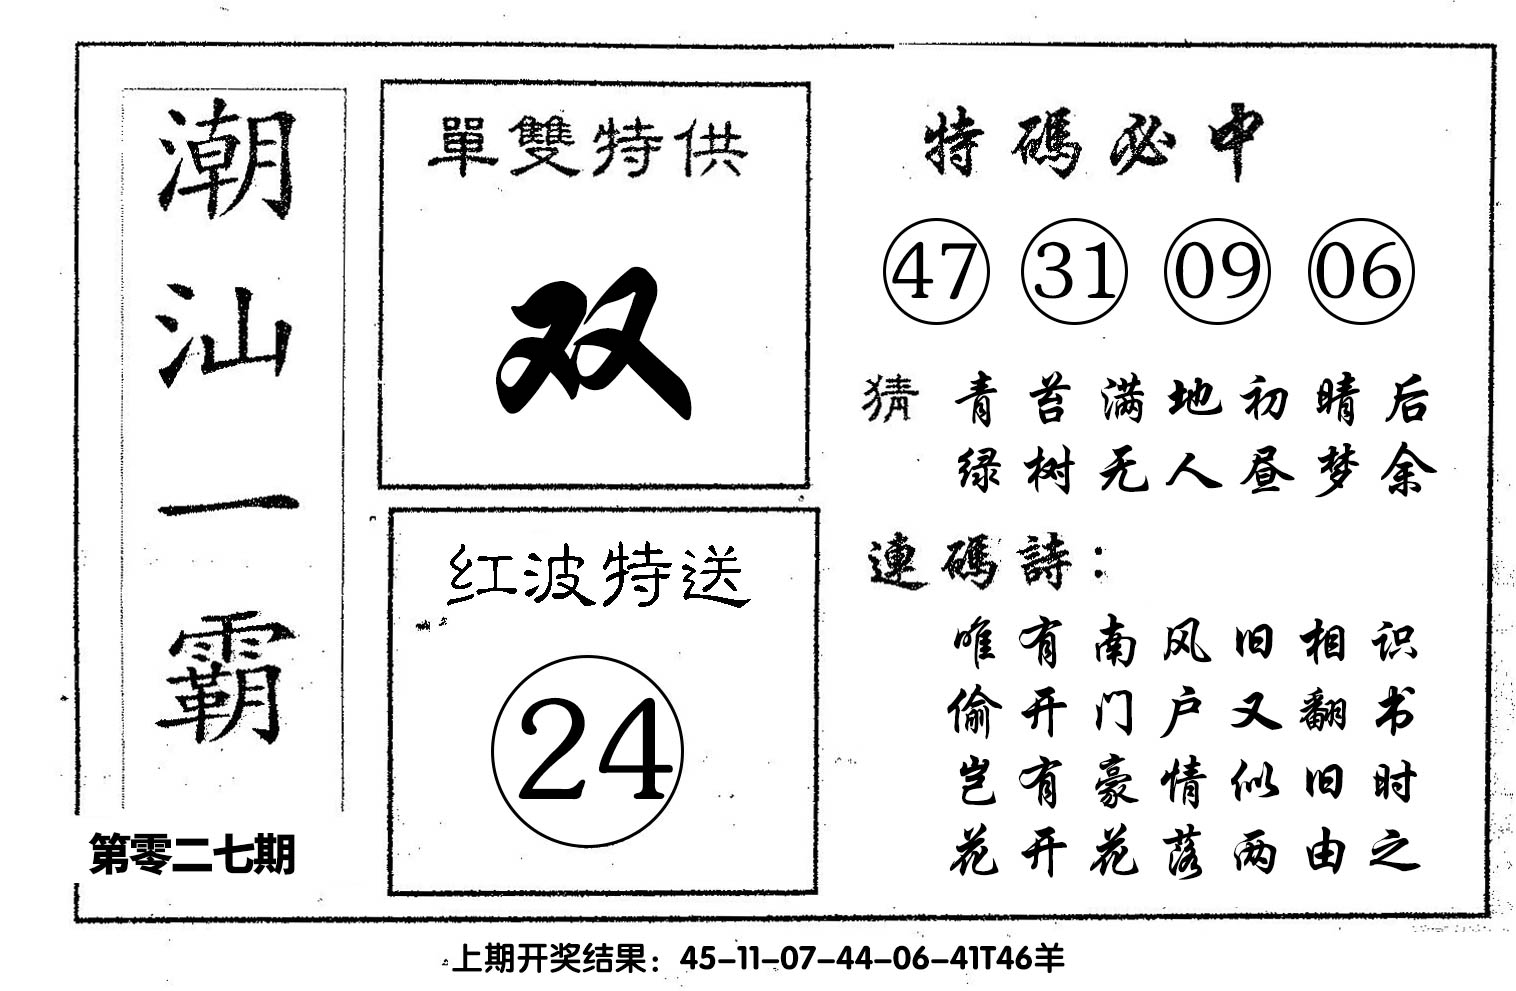 潮汕一霸
第零二七期
單雙特供
双
红波特送
24
特碼必中
47 31 09 06
猜 青苔满地初晴后
绿树无人昼梦余
連碼詩：
唯有南风旧相识
偷开门户又翻书
岂有豪情似旧时
花开花落两由之
上期开奖结果：45-11-07-44-06-41T46羊